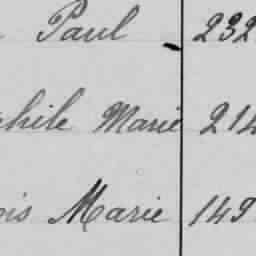 Paul 232
phile Marie 214
ois Marie 149